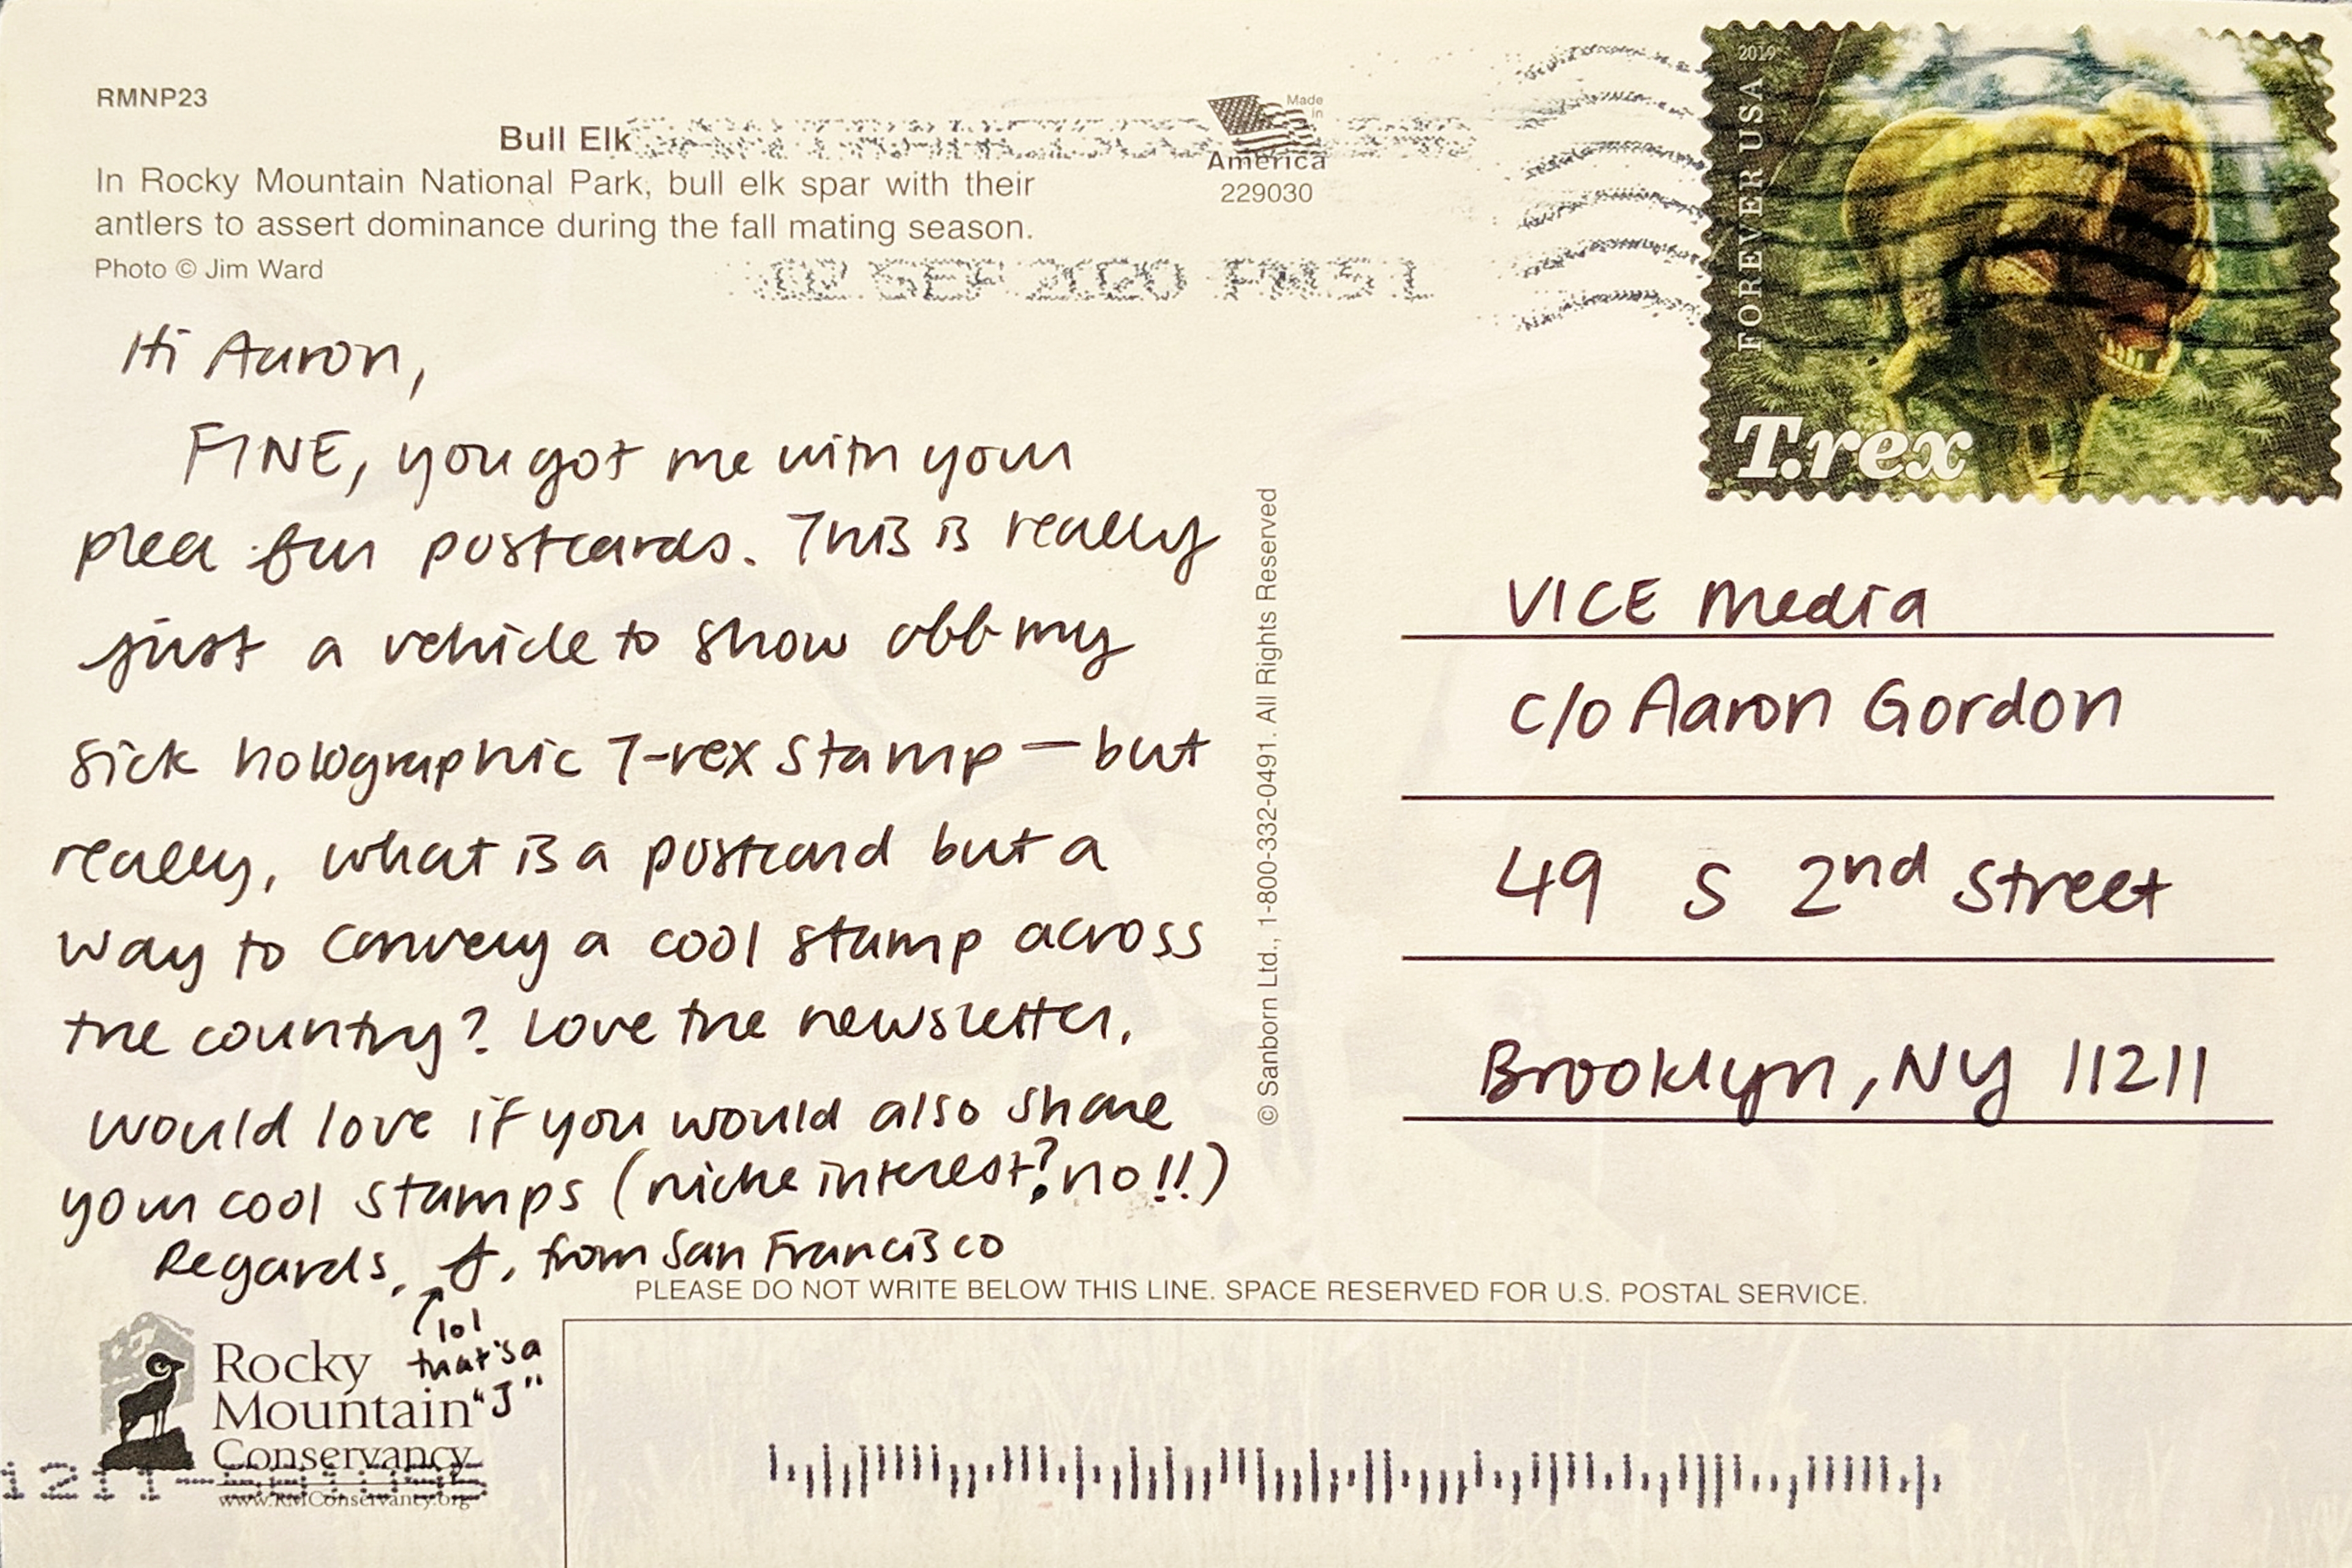 RMNP23
Bull Elk
In Rocky Mountain National Park, bull elk spar with their
antlers to assert dominance during the fall mating season.
Photo © Jim Ward
SAN FRANCISCO
02 SEP 2020 PM 5 L
Made
in
America
229030
2019
FOREVER USA
T.rex
Hi Aaron,
FINE, you got me with your
plea for postcards. This is really
just a vehicle to show off my
sick holographic T-rex stamp — but
really, what is a postcard but a
way to convey a cool stamp across
the country? Love the newsletter.
would love if you would also share
your cool stamps (niche interest? no!!)
Regards, J, from San Francisco
lol
that's a
"J"
© Sanborn Ltd., 1-800-332-0491. All Rights Reserved
VICE Media
c/o Aaron Gordon
49 S 2nd Street
Brooklyn, NY 11211
PLEASE DO NOT WRITE BELOW THIS LINE. SPACE RESERVED FOR U.S. POSTAL SERVICE.
Rocky
Mountain
Conservancy
www.RMConservancy.org